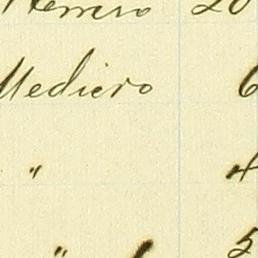 Herrero 20
Mediero 6
" 4
" 5